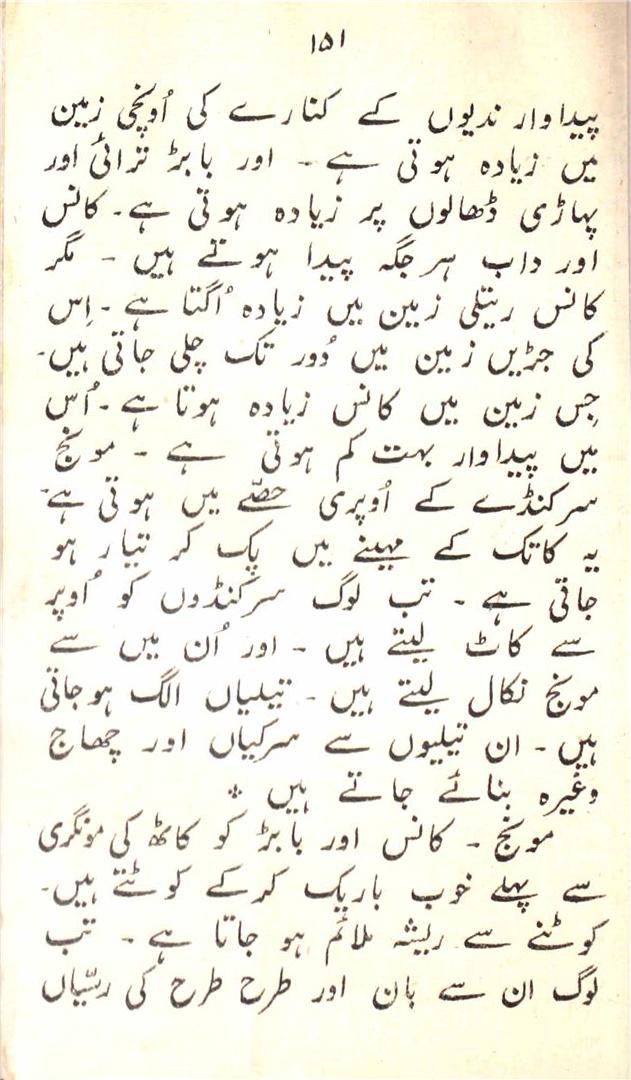 ۱۵۱
پیداوار ندیوں کے کنارے کی اُونچی زمین
میں زیادہ ہوتی ہے ۔ اور بابڑ ترائی اور
پہاڑی ڈھالوں پر زیادہ ہوتی ہے۔ کانس
اور داب ہر جگہ پیدا ہوتے ہیں ۔ مگر
کانس ریتلی زمین میں زیادہ اُگتا ہے ۔ اِس
کی جڑیں زمین میں دُور تک چلی جاتی ہیں۔
جِس زمین میں کانس زیادہ ہوتا ہے ۔ اُس
میں پیداوار بہت کم ہوتی ہے ۔ مونج
سرکنڈے کے اُوپری حصّے میں ہوتی ہے۔
یہ کاتک کے مہینے میں پک کر تیار ہو
جاتی ہے ۔ تب لوگ سرکنڈوں کو اُوپر
سے کاٹ لیتے ہیں ۔ اور اُن میں سے
مونج نکال لیتے ہیں ۔ تیلیاں الگ ہو جاتی
ہیں ۔ ان تیلیوں سے سرکیاں اور چھاج
وغیرہ بنائے جاتے ہیں ⁂
مونج ۔ کانس اور بابڑ کو کاٹھ کی مونگری
سے پہلے خوب باریک کرکے کوٹتے ہیں۔
کوٹنے سے ریشہ ملائم ہو جاتا ہے ۔ تب
لوگ ان سے بان اور طرح طرح کی رسّیاں